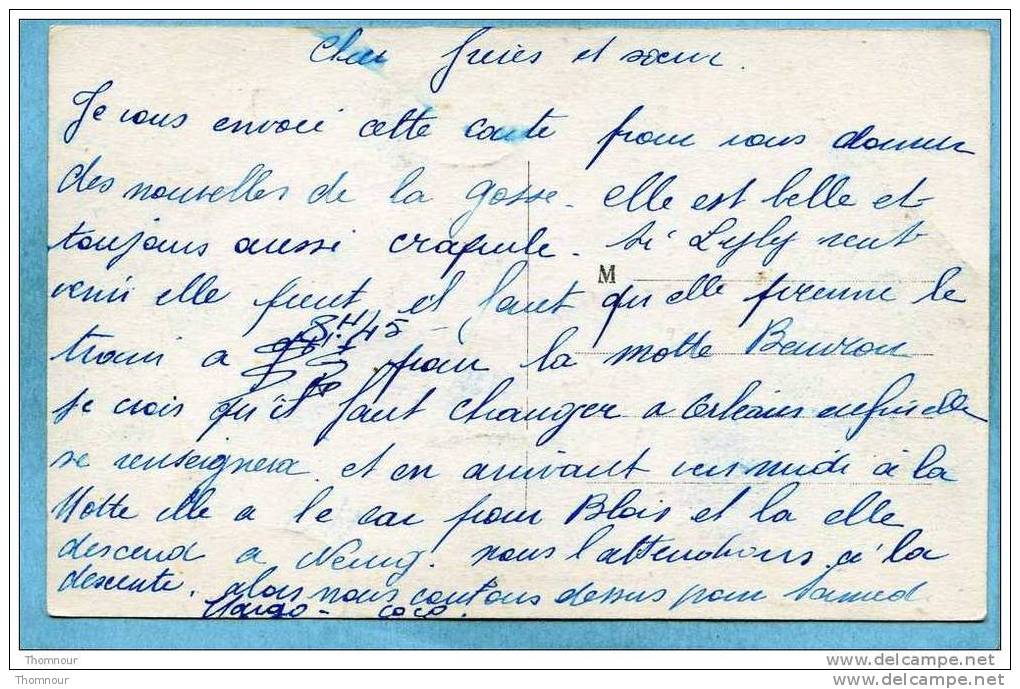 Cher frères et sœur.
Je vous envoie cette carte pour vous donner
des nouvelles de la gosse. elle est belle et
toujours aussi crapule. si Lyly veut
M
venir elle peut, il faut qu'elle prenne le
train a 8.H/45 pour la motte Beuvron
je crois qu'il faut changer a Orléans enfin elle
se renseignera. et en arrivant vers midi à la
Motte elle a le car pour Blois et la elle
descend a Neung. nous l'attendrons à la
descente. alors nous contons dessus pour Samedi
Margo - coco.
Thomnour
Thomnour
www.delcampe.net
www.delcampe.net